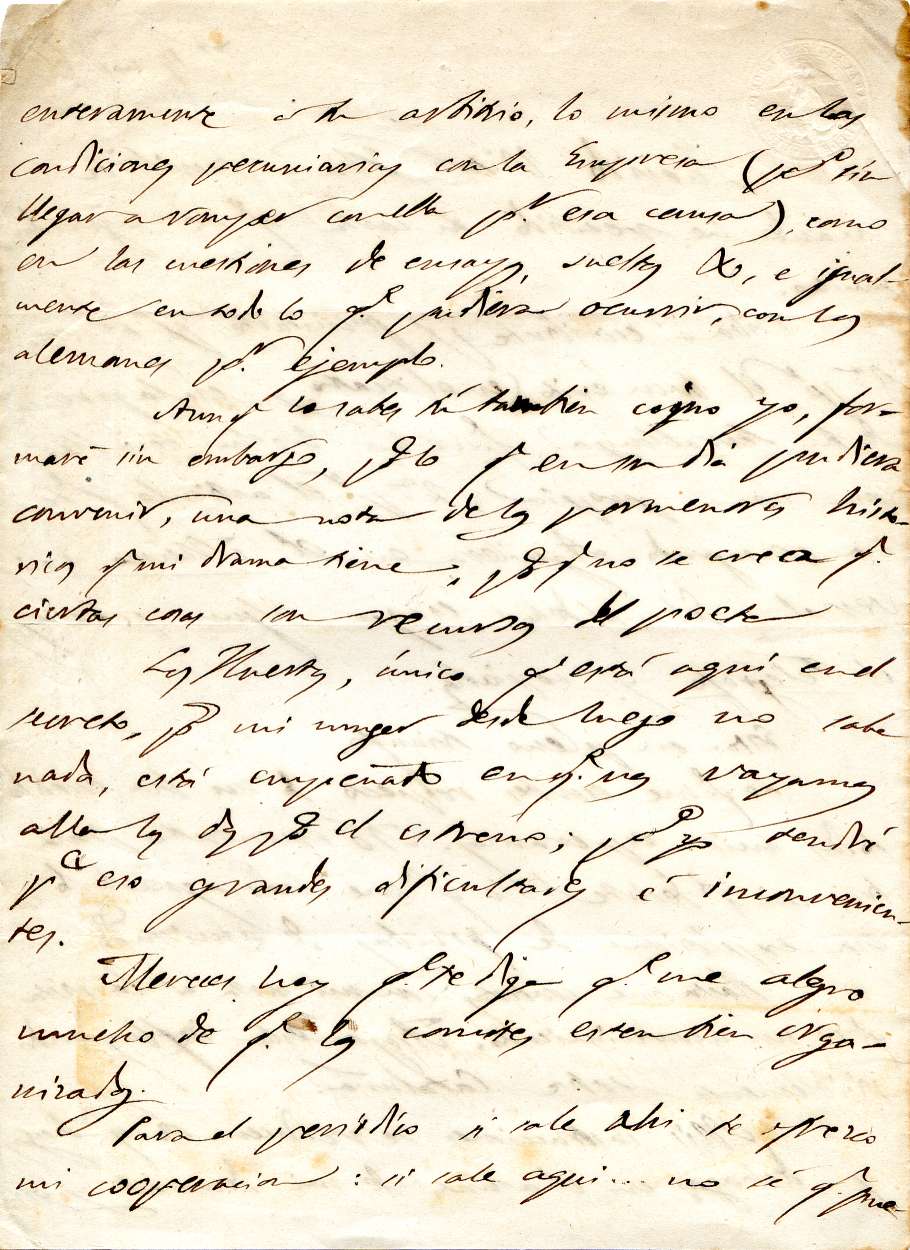 enteramente á tu arbitrio, lo mismo en las
condiciones pecuniarias con la Empresa (pº sin
llegar a romper con ella pr. esa causa), como
en las cuestiones de ensayos, sueltos &, e igual-
mente en todo lo q.e pudiera ocurrir, con los
alemanes pr. ejemplo.
Aunq lo sabes tú tambien como yo, for-
maré sin embargo, pª lo q en su dia pudiera
convenir, una nota de los pormenores histo-
ricos q mi drama tiene, pª q no se crea q.
ciertas cosas son recursos del poeta
Las Huertas, único q está aquí en el
secreto, ps mi muger desde luego no sabe
nada, está empeñado en q.e nos vayamos
alla los dos pª el estreno; pº yo tendré
pª eso grandes dificultades é inconvenien-
tes.
q.e te diga q.e me alegro
mucho de q. los comites esten bien orga-
nizados.
Para el periódico si sale ahi te ofrezco
mi cooperacion: si sale aqui... no sé q. pue-